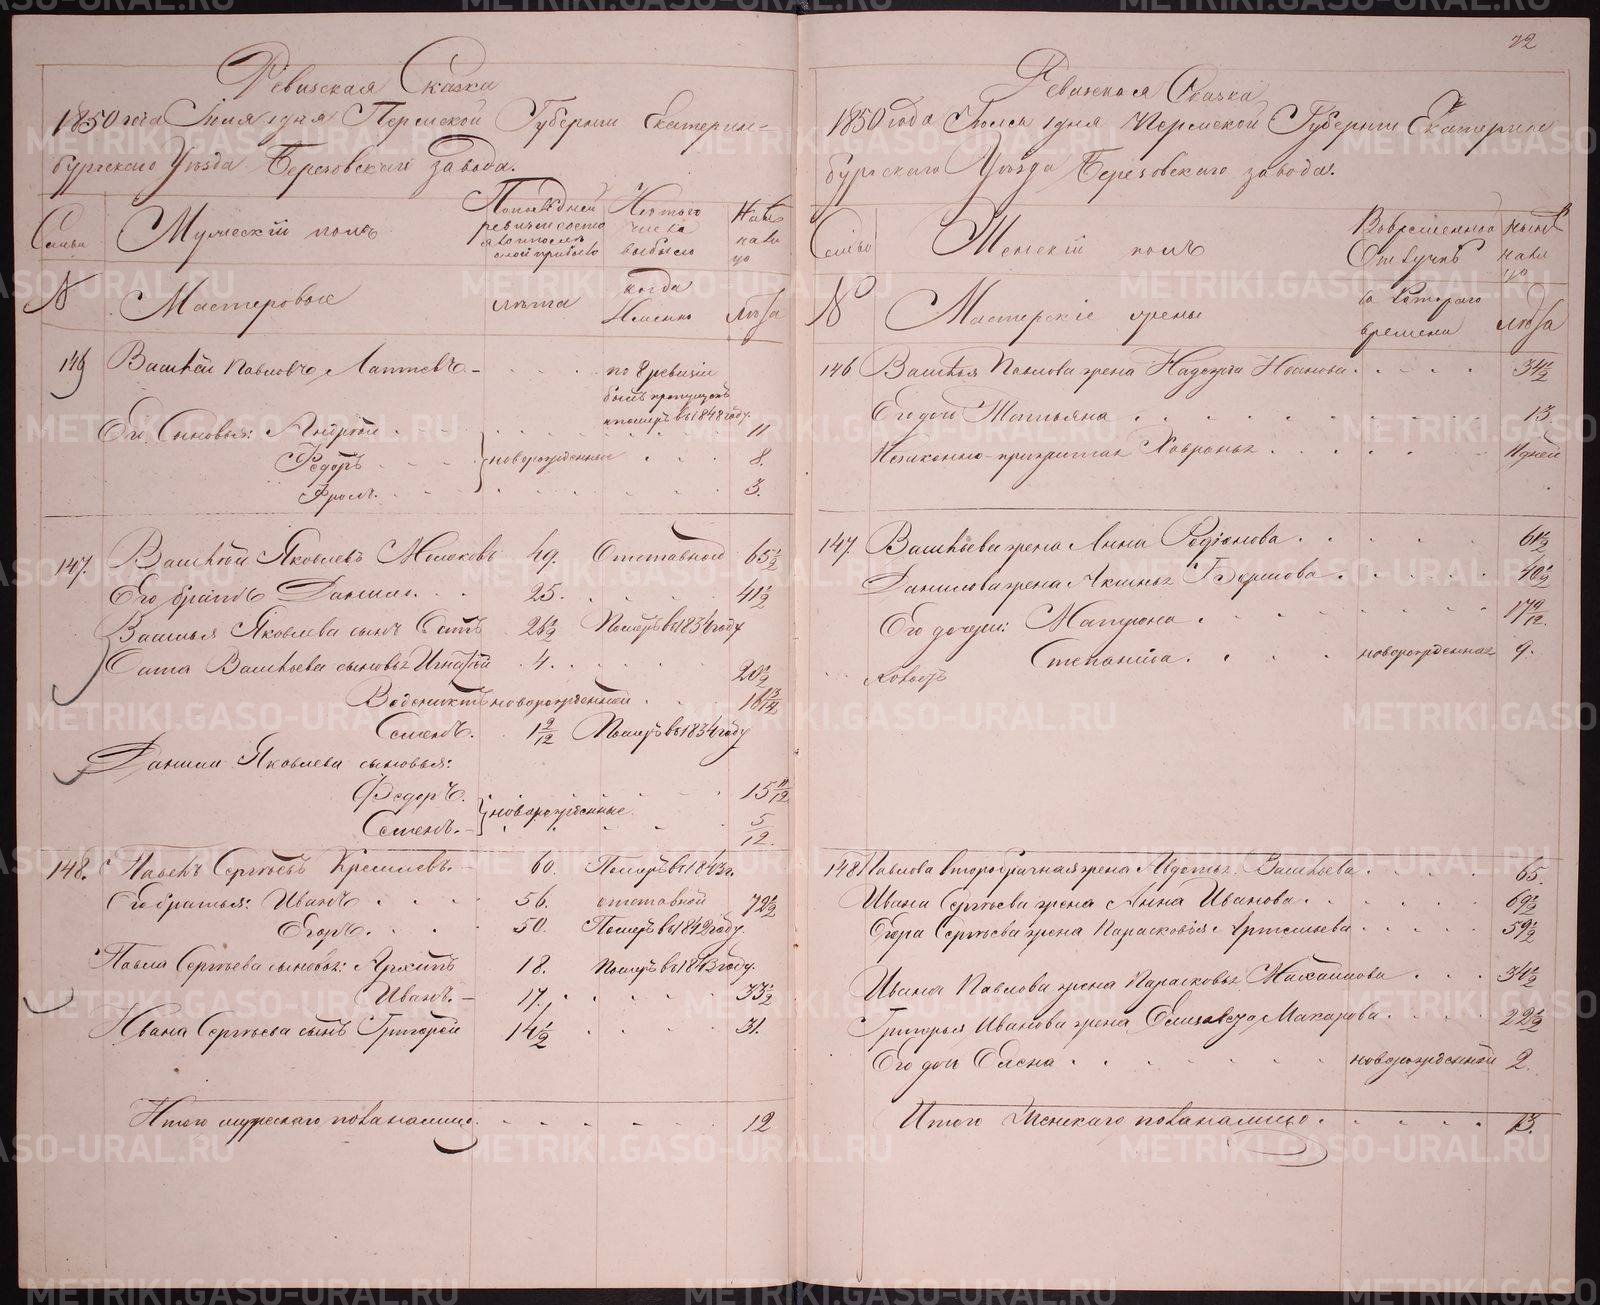 72
Ревизская Сказка
1850 года Июля 1 дня Пермской Губернии Екатерин-
бургского Уезда Березовский завода.
Семьи
Мужеский полъ
По последней ревизии состо
Изътого числа выбыло
Ныне нали цо
№
Мастеровые
лѣта
когда Именно
лѣта
146 Василий Павловъ Лаптевъ - по 8 ревизии былъ пропущенъ и померъ въ 1848 году.
Его Сыновья: Андрей 11
Федоръ новорожденные 8.
Фролъ. 3.
147. Василий Яковлевъ 49. Отставной 65 1/2
Его братъ Данило. 25. 41 1/2
Василья Яковлева сынъ 26 1/2 Померъ въ 1834 году
Васильева сыновья Игнатий 4. 20 1/2
новорожденной
Семенъ. 1 9/12 Померъ въ 1834 году
Данила Яковлева сыновья:
Федоръ. 15 11/12
новорожденные
Семенъ. - 5/12.
148. Павелъ Сергѣевъ 60. Померъ въ 1843 г.
Его братья: Иванъ 56. отставной 72 1/2
Егоръ. 50. Померъ въ 1842 году.
Павла Сергѣева сыновья: Архипъ 18. Померъ въ 1843 году.
Иванъ. - 17. 33 1/2
Ивана Сергѣева сынъ Григорей 14 1/2 31.
Итого мужескаго пола налицо. 12
Ревизская Сказка
1850 года Июля 1 дня Пермской Губернии Екатерин
бургскаго Уезда Березовскаго завода.
Женский полъ
Во временной Отлучкѣ
ныне нали цо
№
Мастерские жены
съ Котораго времени
лѣта
146 Василья Павлова жена Надежда Иванова 34 1/2
Его дочь Татьяна 13.
Хавронья дней
147. Васильева жена Анна Родионова 61 1/2
Данилова жена Акинья 40 1/2
Его дочери: Матрона 17 9/12
Степанида. новорожденная 9.
148 Павлова второбрачная жена Авдотья Васильева 65.
Ивана Сергѣева жена Анна Иванова 69 1/2
Егора Сергѣева жена Парасковия Артемьева 59 1/2
Ивана Павлова жена Парасковья Михайлова 34 1/2
Григорья Иванова жена Елизавета Макарова 22 1/2
Его дочь Елена новорожденной 2.
Итого Женскаго пола налицо. 13.
METRIKI.GASO-URAL.RU